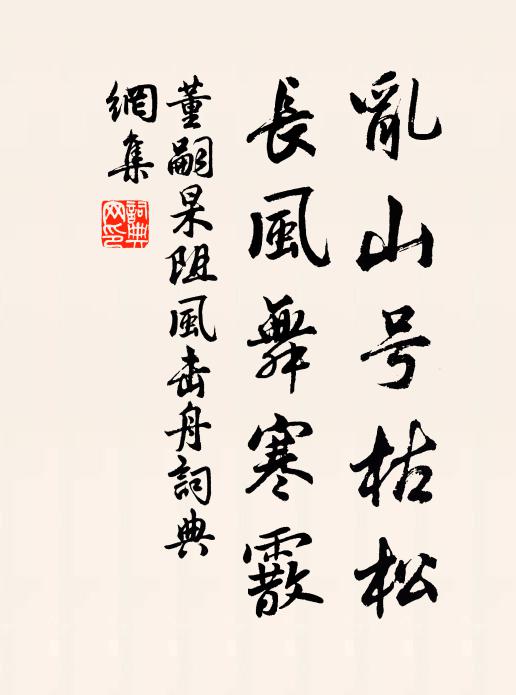 亂山号枯松
長風舞寒霰
董嗣杲阻風舟詞典
網集
詞典
網印